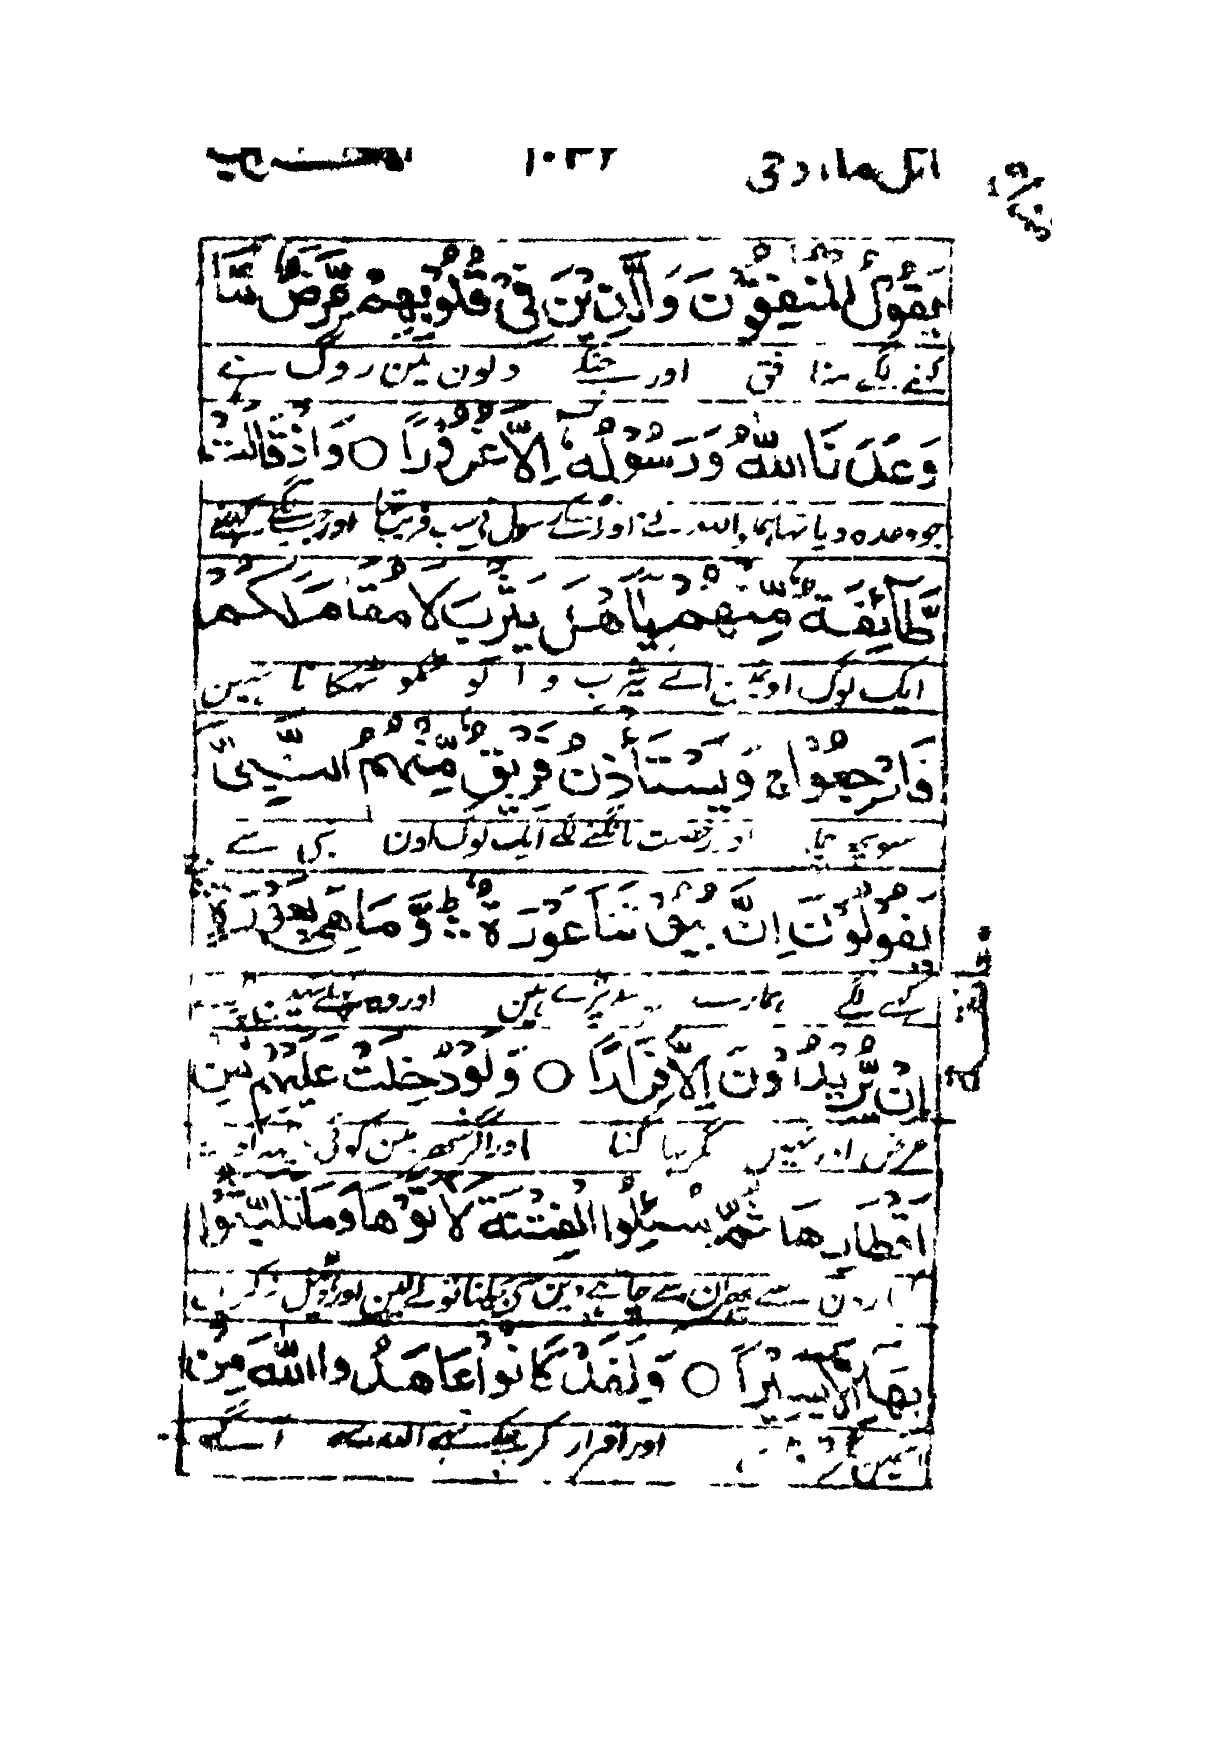 اتل ما اوحی ١٠٣٢
يَقُولُ الْمُنٰفِقُوْنَ وَالَّذِيْنَ فِيْ قُلُوْبِهِمْ مَّرَضٌ مَّا
کہنے لگے منافق اور جنکے دلون مین روگ ہے
وَعَدَنَا اللّٰهُ وَرَسُوْلُهٗٓ اِلَّا غُرُوْرًا ○ وَاِذْ قَالَتْ
جو وعدہ دیا تہا ہمکو اللہ نے اور اسکے رسول نے سب فریب تہا اور جب کہنے لگے
طَّآئِفَةٌ مِّنْهُمْ يٰٓاَهْلَ يَثْرِبَ لَا مُقَامَ لَكُمْ
ایک لوگ اونمین اے یثرب والو تمکو ٹہکانا نہین
فَارْجِعُوْا ۚ وَيَسْتَأْذِنُ فَرِيْقٌ مِّنْهُمُ النَّبِيَّ
سو پھر اور رخصت مانگنے لگے ایک لوگ اون نبی سے
يَقُوْلُوْنَ اِنَّ بُيُوْتَنَا عَوْرَةٌ ۛؕ وَّمَا هِيَ بِعَوْرَةٍ ۛ
کہنے لگے ہمارے پڑے ہین اور وہ
اِنْ يُّرِيْدُوْنَ اِلَّا فِرَارًا ○ وَلَوْ دُخِلَتْ عَلَيْهِمْ مِّنْ
غرض اور نہین مگر بہاگنا اور اگر شہر مین کوئی
اَقْطَارِهَا ثُمَّ سُئِلُوا الْفِتْنَةَ لَاٰتَوْهَا وَمَا تَلَبَّثُوْا
سے پھر ان سے چاہے دین سے بچلنا تو لے لین اور ڈہیل نہ کرین
بِهَآ اِلَّا يَسِيْرًا ○ وَلَقَدْ كَانُوْا عَاهَدُوا اللّٰهَ مِنْ
اور اقرار کر چکے تہے اللہ سے آگے